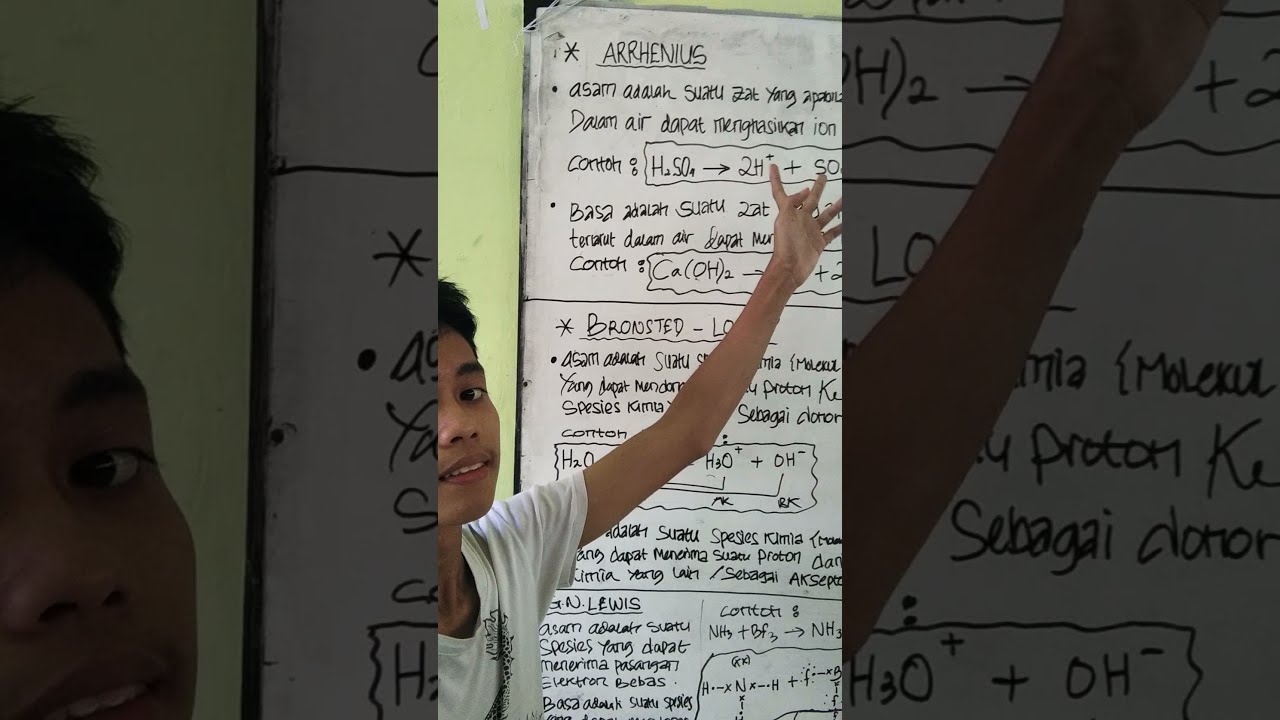 * ARRHENIUS
• asam adalah suatu zat yang apabila
Dalam air dapat menghasilkan ion
contoh : H₂SO₄ → 2H⁺ + SO
• Basa adalah suatu zat
terlarut dalam air dapat
Contoh : Ca(OH)₂ → + 2
* BRONSTED - LO
• Asam adalah suatu {Molekul
Yang dapat proton Ke
Spesies kimia Sebagai donor
contoh
H₂O H₃O⁺ + OH⁻
BK
adalah suatu spesies kimia
yang dapat menerima suatu proton dari
kimia yang lain / Sebagai Aksepto
G.N. LEWIS
asam adalah suatu
Spesies yang dapat
menerima pasangan
Elektron Bebas.
Basa adalah suatu spesies
yang dapat
contoh :
NH₃ + BF₃ → NH₃